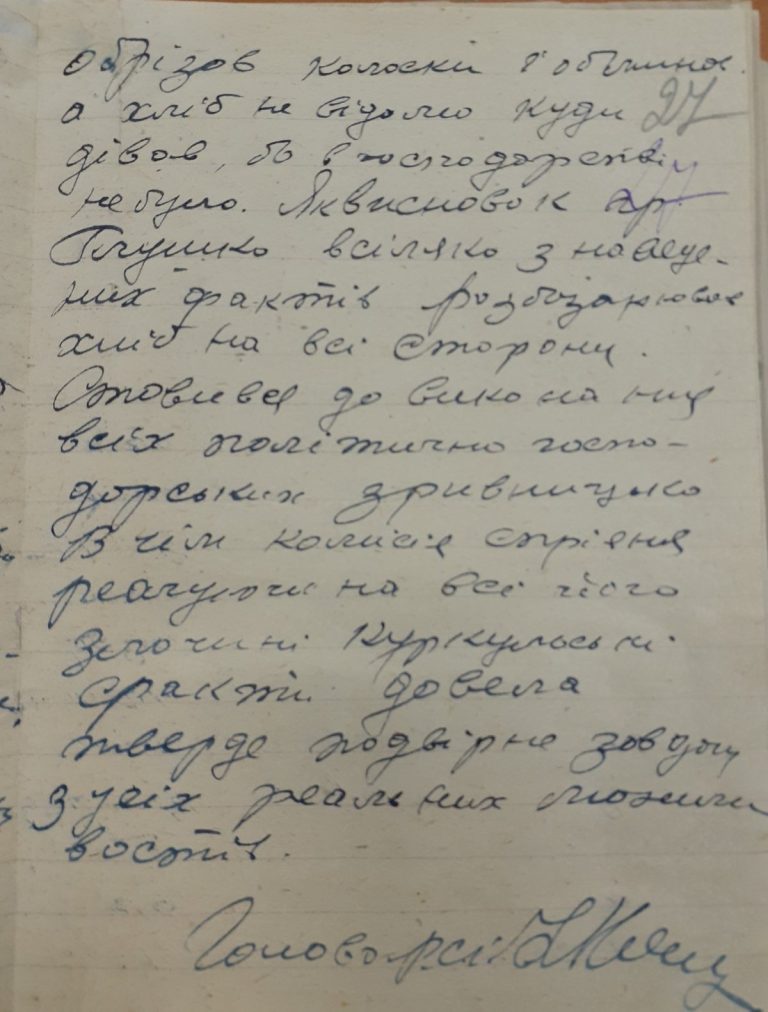 обрізов колоски і обмина
а хліб не відомо куди 27
дівав, бо в господарстві
небуло. Яквисновок гр.
Глушко всіляко з наведе-
них фактів розбазарював
хліб на всі сторони.
Ставився до виконання
всіх політично госпо-
дорських зривницько
В чім комісія сприяня
реагуючи на всі його
злочині куркульські
факти довела
тверде подвірне завдан
з усіх реальних можли
востів.
Голова рсі